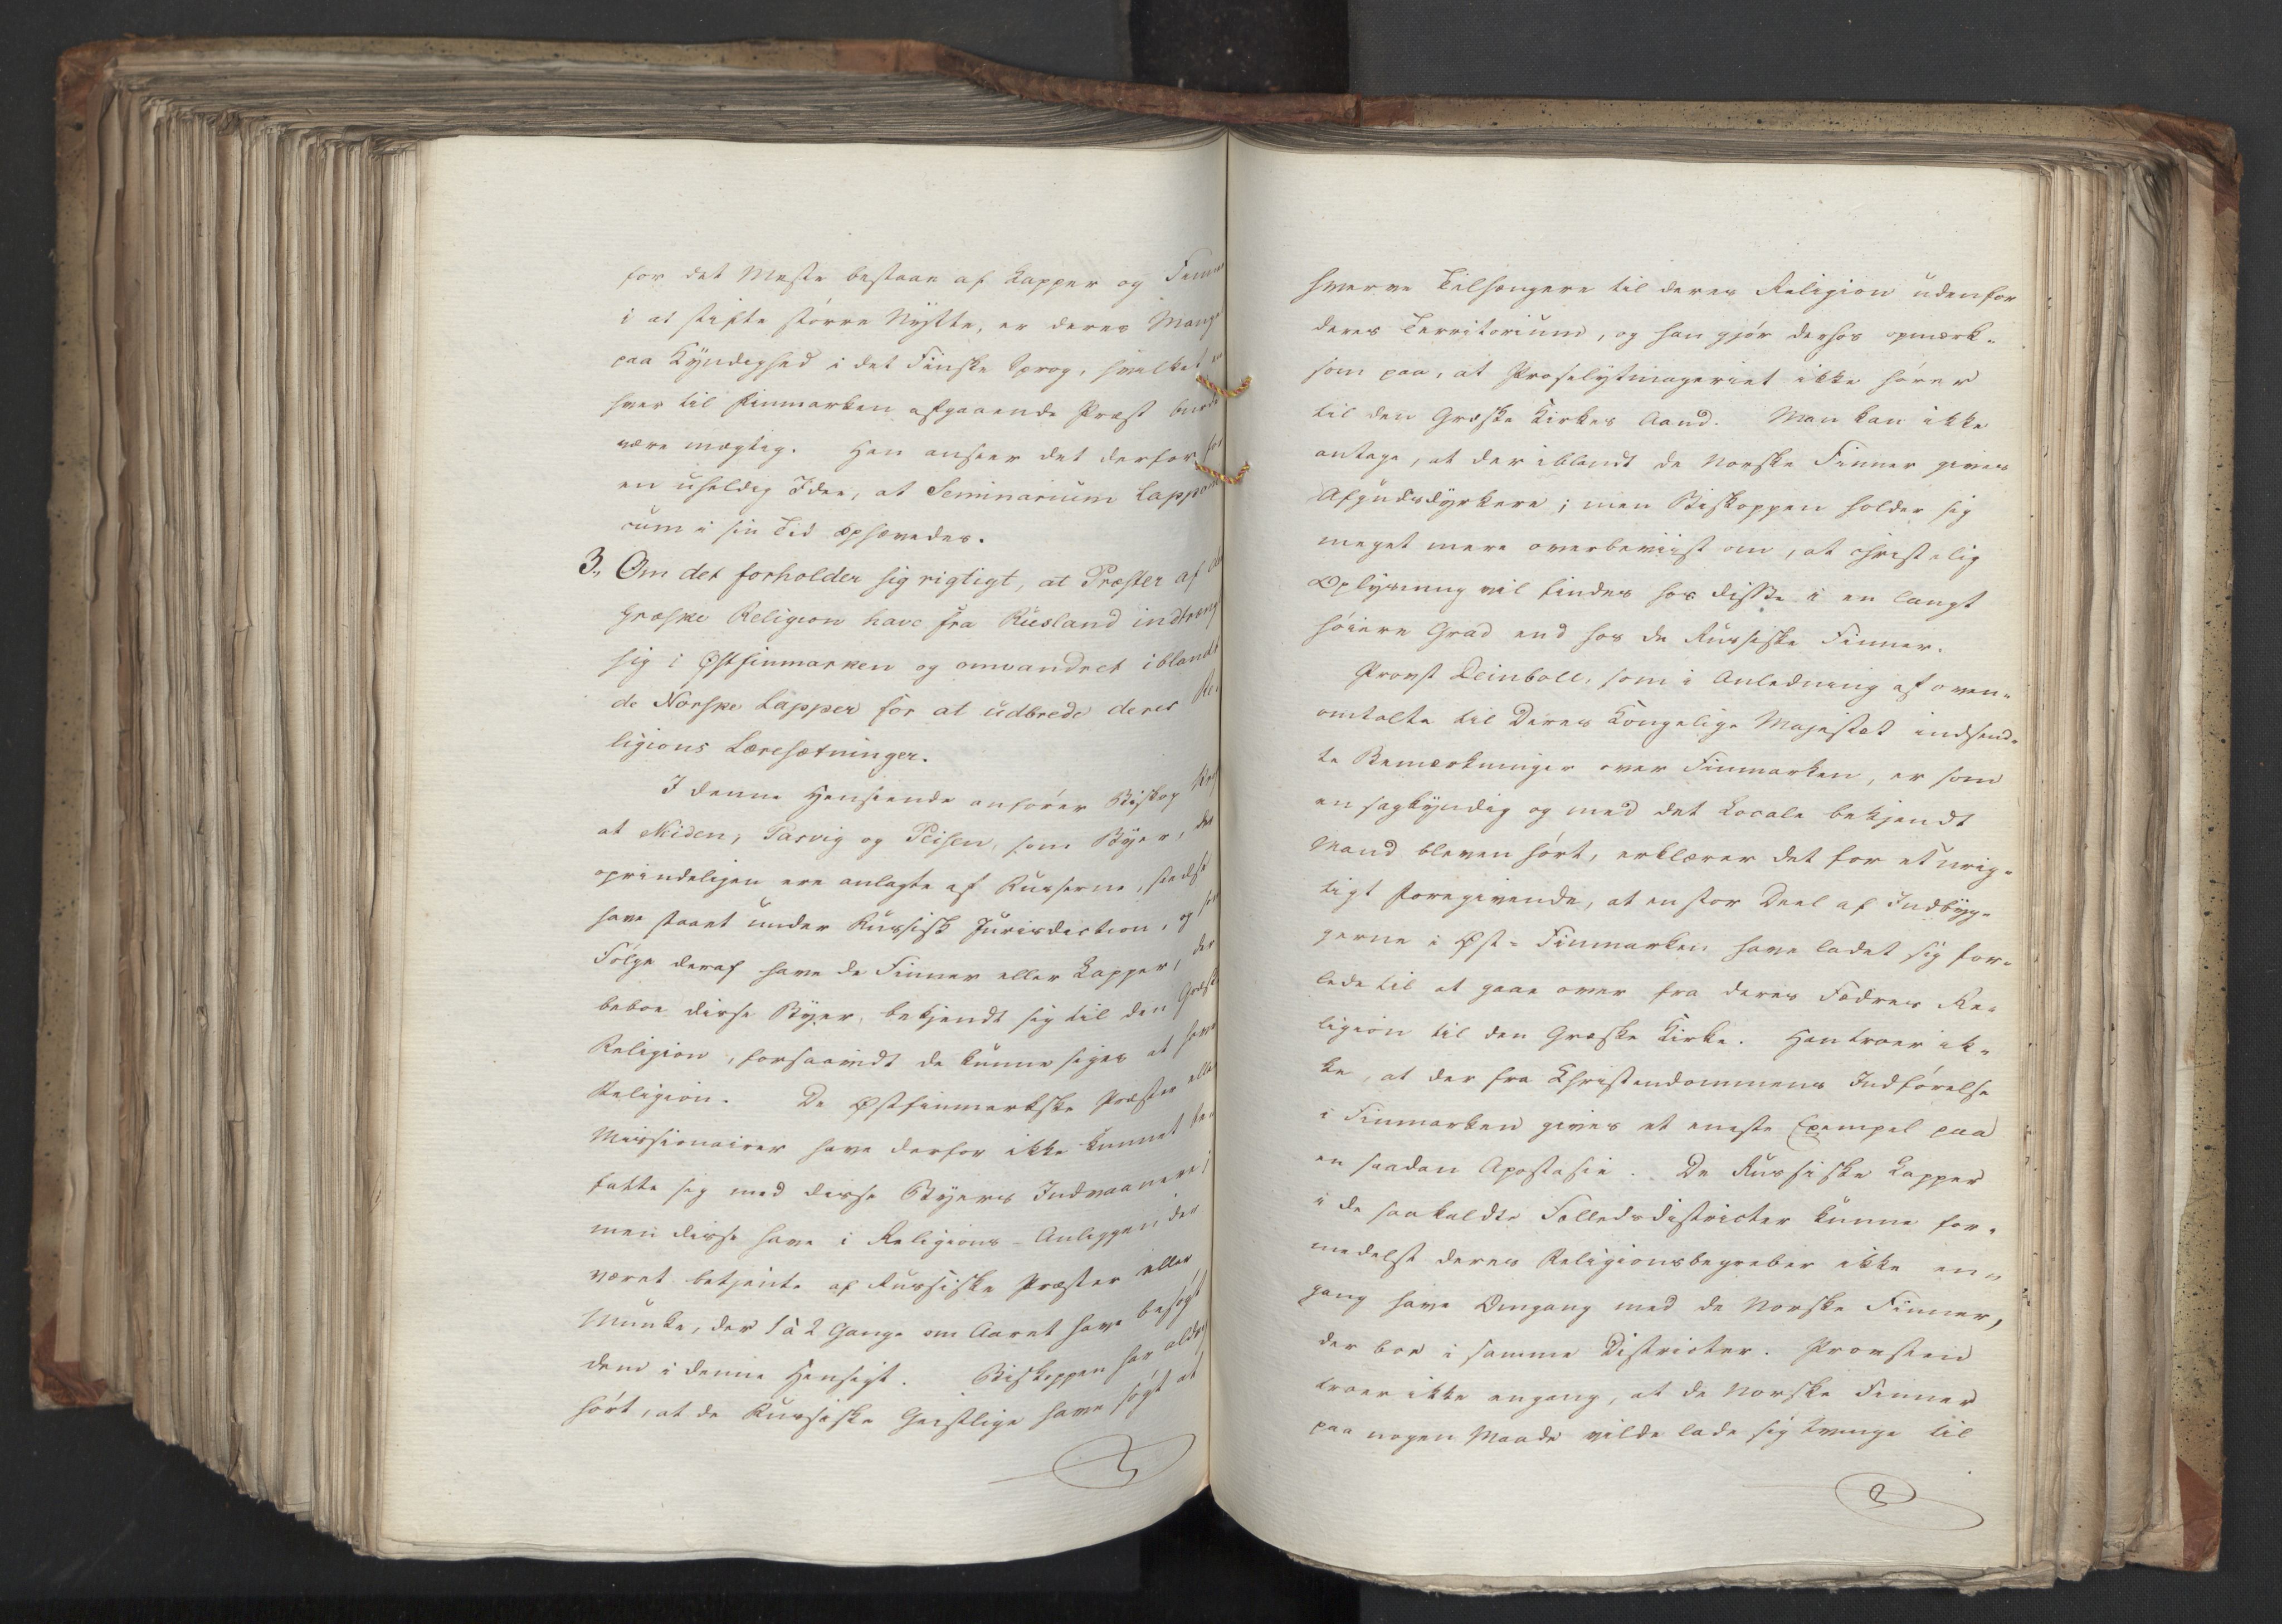 for det Meste bestaae af Lapper og Finner
i at stifte större Nytte, er deres Mangel
paa Kÿndighed i det Finske Sprog, hvilket
hver til Finmarken afgaaende Præst burde
være mægtig. Han anseer det derfor for
en uheldig Idee, at Seminarium Lapponi
cum i sin Tid ophævedes.
3., Om det forholder sig rigtigt, at Præster af
Græske Religion have fra Rusland indtrængt
sig i Østfinmarken og omvandret iblandt
de Norske Lapper for at udbrede deres Re-
ligions Læresætninger.
I denne Henseende anförer Biskop
at Neiden, Pasvig og Peisen, som Bÿer, der
oprindeligen ere anlagte af Russerne, stedse
have staaet under Russisk Jurisdiction, og som
Fölge deraf have de Finner eller Lapper, der
beboe disse Bÿer, bekjendt sig til den Græske
Religion, forsaavidt de kunne siges at have
Religion. De Østfinmarkske Præster eller
Missionairer have derfor ikke kunnet be-
fatte sig med disse Bÿers Indvaanere;
men disse have i Religions-Anliggender
været betjente af Russiske Præster eller
Munke, der 1 à 2 Gange om Aaret have besögt
dem i denne Hensigt. Biskoppen har aldrig
hört, at de Russiske Geistlige have sögt at
hverve Tilhængere til deres Religion udenfor
deres Territorium, og han gjör derhos opmærk-
som paa, at Proselÿtmageriet ikke hörer
til den Græske Kirkes Aand. Man kan ikke
antage, at der iblandt de Norske Finner gives
Afgudsdÿrkere; men Biskoppen holder sig
meget mere overbeviist om, at christelig
Oplÿsning vil findes hos disse i en langt
höiere Grad end hos de Russiske Finner.
Provst Deinboll, som i Anledning af oven-
omtalte til Deres Kongelige Majestæt indsend-
te Bemærkninger over Finmarken, er som
en sagkÿndig og med det Locale bekjendt
Mand bleven hört, erklærer det for et urig-
tigt Foregivende, at en stor Deel af Indbÿg-
gerne i Øst-Finmarken have ladet sig for-
lede til at gaae over fra deres Fædres Re-
ligion til den Græske Kirke. Han troer ik-
ke, at der fra Christendommens Indförelse
i Finmarken gives et eneste Exempel paa
en saadan Apostasie. De Russiske Lapper
i de saakaldte Fælledsdistricter kunne for-
medelst deres Religionsbegreber ikke en-
gang have Omgang med de Norske Finner,
der boe i samme Districter. Provsten
troer ikke engang, at de Norske Finner
paa nogen Maade vilde lade sig tvinge til